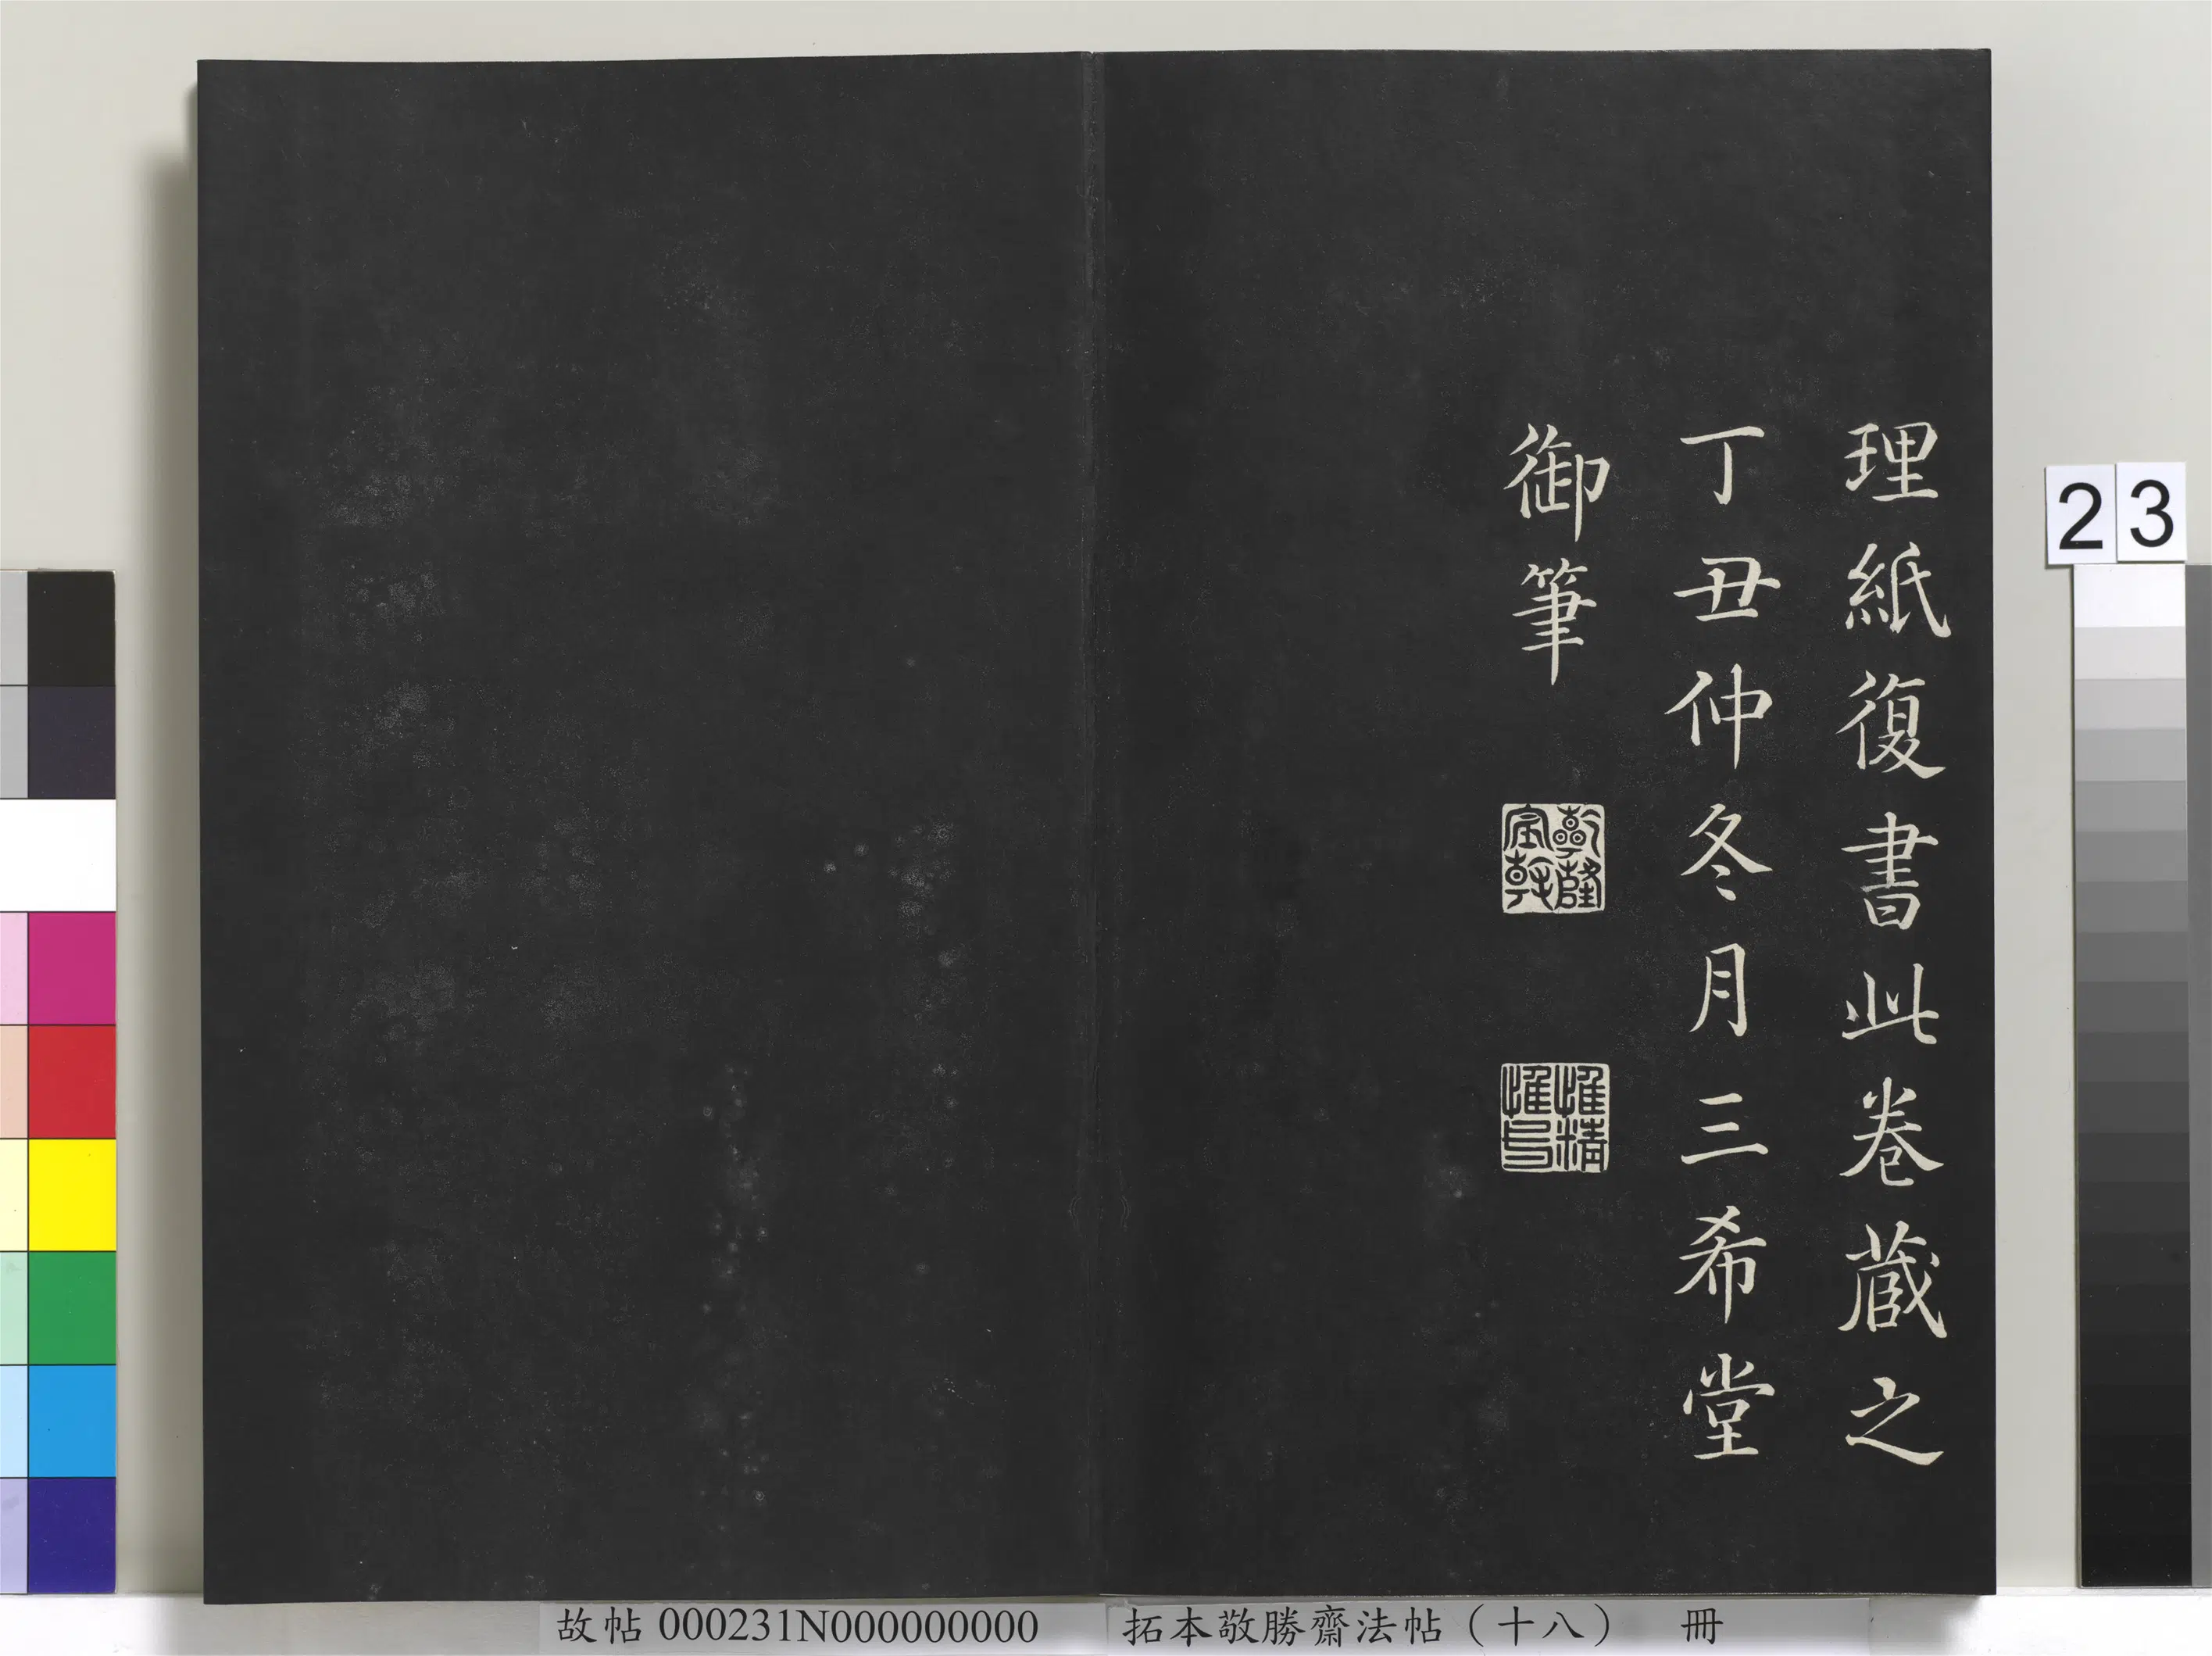 理紙復書此卷蔵之
丁丑仲冬月三希堂
御筆
乾隆宸翰
惟精惟一
23
故帖 000231N000000000
拓本敬勝齋法帖（十八） 冊